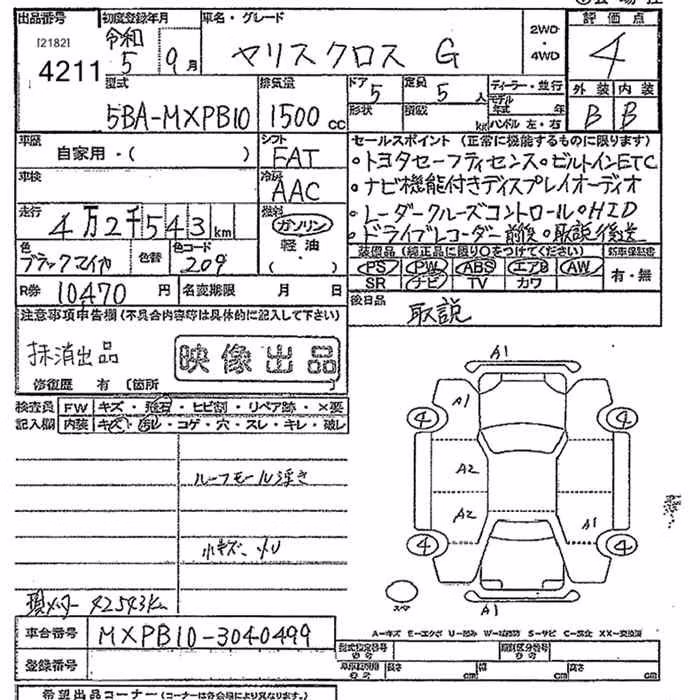 出品番号 初度登録年月 車名・グレード 評価点
[2182]
4211
令和
5 9月 ヤリスクロス G 2WD・4WD 4
型式 排気量 ドア 定員 ディーラー・並行 外装 内装
5BA-MXPB10 1500cc 5 5人 モデル年式 年 B B
形状 積載 kg ハンドル 左・右
車歴 シフト セールスポイント (正常に機能するものに限ります)
自家用・( ) FAT ・トヨタセーフティセンス・ビルトインETC
車検 冷房 AAC ・ナビ機能付きディスプレイオーディオ
走行 4万2千543km 燃料 ガソリン ・レーダークルーズコントロール・HID
軽油 ・ドライブレコーダー前後・取説後送
色 色替 色コード 装備品 (純正品に限り○をつけてください) 新車保証書
ブラックマイカ 209 ・( ) PS PW ABS エアB AW 有・無
SR ナビ TV カワ
R券 10470円 名変期限 月 日 後日品
取説
注意事項申告欄 (不具合内容等は具体的に記入して下さい)
抹消出品 映像出品
修復歴 有 (箇所
検査員 FW キズ・飛石・ヒビ割・リペア跡・×要
記入欄 内装 キズ・汚レ・コゲ・穴・スレ・キレ・破レ
ルーフモール浮き
小キズ、凹
現メーター 42543km
A1
A1
4 4
A2
A2 A1
4 4
スペア A1
A-キズ E-エクボ U-凹み W-波 S-サビ C-腐食 XX-交換済
車台番号 MXPB10-3040499
型式指定番号 類別区分番号
登録番号 長さ cm 幅 cm 高さ cm
希望出品コーナー (コーナーは各会場により異なります)